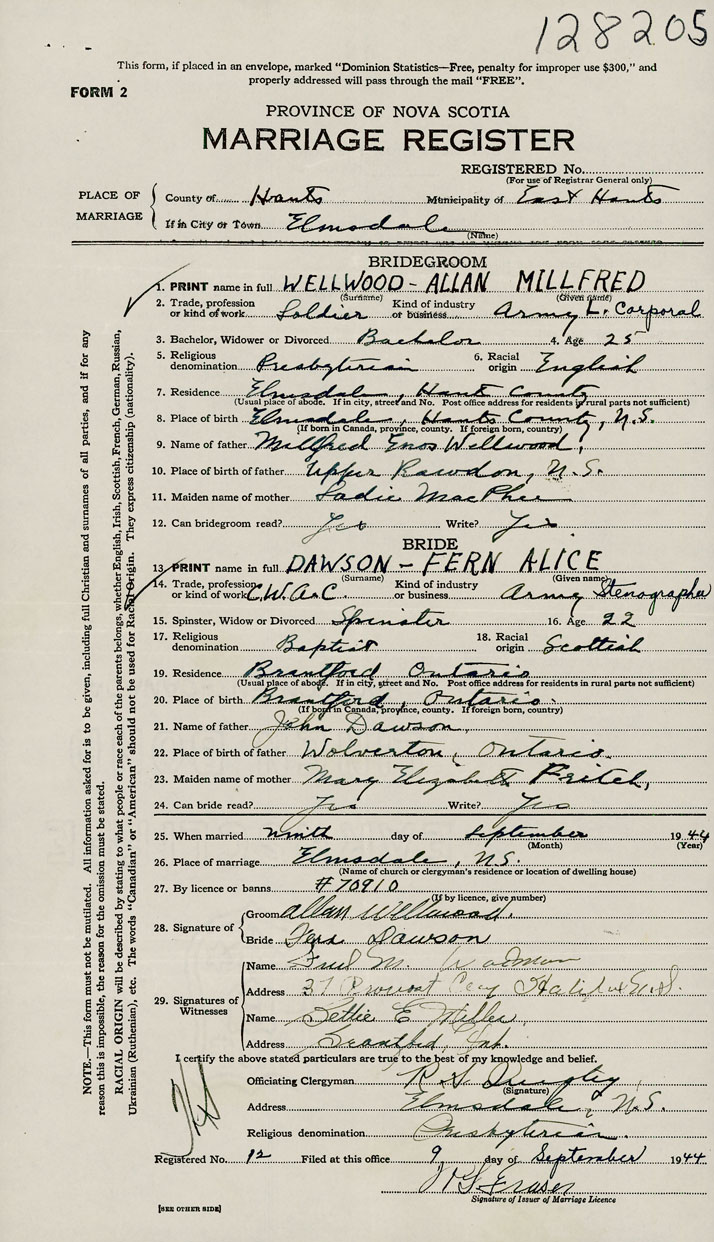 128205
This form, if placed in an envelope, marked "Dominion Statistics—Free, penalty for improper use $300," and
properly addressed will pass through the mail "FREE".
FORM 2
PROVINCE OF NOVA SCOTIA
MARRIAGE REGISTER
REGISTERED No.
(For use of Registrar General only)
PLACE OF MARRIAGE
County of Hants Municipality of East Hants
If in City or Town Elmsdale
(Name)
BRIDEGROOM
1. PRINT name in full WELLWOOD - ALLAN MILLFRED
(Surname) (Given name)
2. Trade, profession or kind of work Soldier Kind of industry or business Army L. Corporal
3. Bachelor, Widower or Divorced Bachelor 4. Age 25
5. Religious denomination Presbyterian 6. Racial origin English
7. Residence Elmsdale, Hant County
(Usual place of abode. If in city, street and No. Post office address for residents in rural parts not sufficient)
8. Place of birth Elmsdale, Hants County, N.S.
(If born in Canada, province, county. If foreign born, country)
9. Name of father Millfred Enos Wellwood
10. Place of birth of father Upper Rawdon, N.S.
11. Maiden name of mother Sadie MacPhee
12. Can bridegroom read? Yes Write? Yes
BRIDE
13. PRINT name in full DAWSON - FERN ALICE
(Surname) (Given name)
14. Trade, profession or kind of work C.W.A.C. Kind of industry or business Army Stenographer
15. Spinster, Widow or Divorced Spinster 16. Age 22
17. Religious denomination Baptist 18. Racial origin Scottish
19. Residence Brantford Ontario
(Usual place of abode. If in city, street and No. Post office address for residents in rural parts not sufficient)
20. Place of birth Brantford, Ontario.
(If born in Canada, province, county. If foreign born, country)
21. Name of father John Dawson
22. Place of birth of father Wolverton, Ontario.
23. Maiden name of mother Mary Elizabeth
24. Can bride read? Yes Write? Yes
25. When married ninth day of September 1944
(Month) (Year)
26. Place of marriage Elmsdale, N.S.
(Name of church or clergyman's residence or location of dwelling house)
27. By licence or banns #70910
(If by licence, give number)
28. Signature of Groom Allan Wellwood.
Bride Fern Dawson
29. Signatures of Witnesses
Name Fred M.
Address 37 Halifax N.S.
Name Bettie E Miller
Address Brantford, Ont.
I certify the above stated particulars are true to the best of my knowledge and belief.
Officiating Clergyman R. S.
(Signature)
Address Elmsdale, N.S.
Religious denomination Presbyterian.
Registered No. 12 Filed at this office 9 day of September 1944
Fraser
Signature of Issuer of Marriage Licence
[SEE OTHER SIDE]
NOTE.—This form must not be mutilated. All information asked for is to be given, including full Christian and surnames of all parties, and if for any
reason this is impossible, the reason for the omission must be stated.
RACIAL ORIGIN will be described by stating to what people or race each of the parents belongs, whether English, Irish, Scottish, French, German, Russian,
Ukrainian (Ruthenian), etc. The words "Canadian" or "American" should not be used for Racial Origin. They express citizenship (nationality).